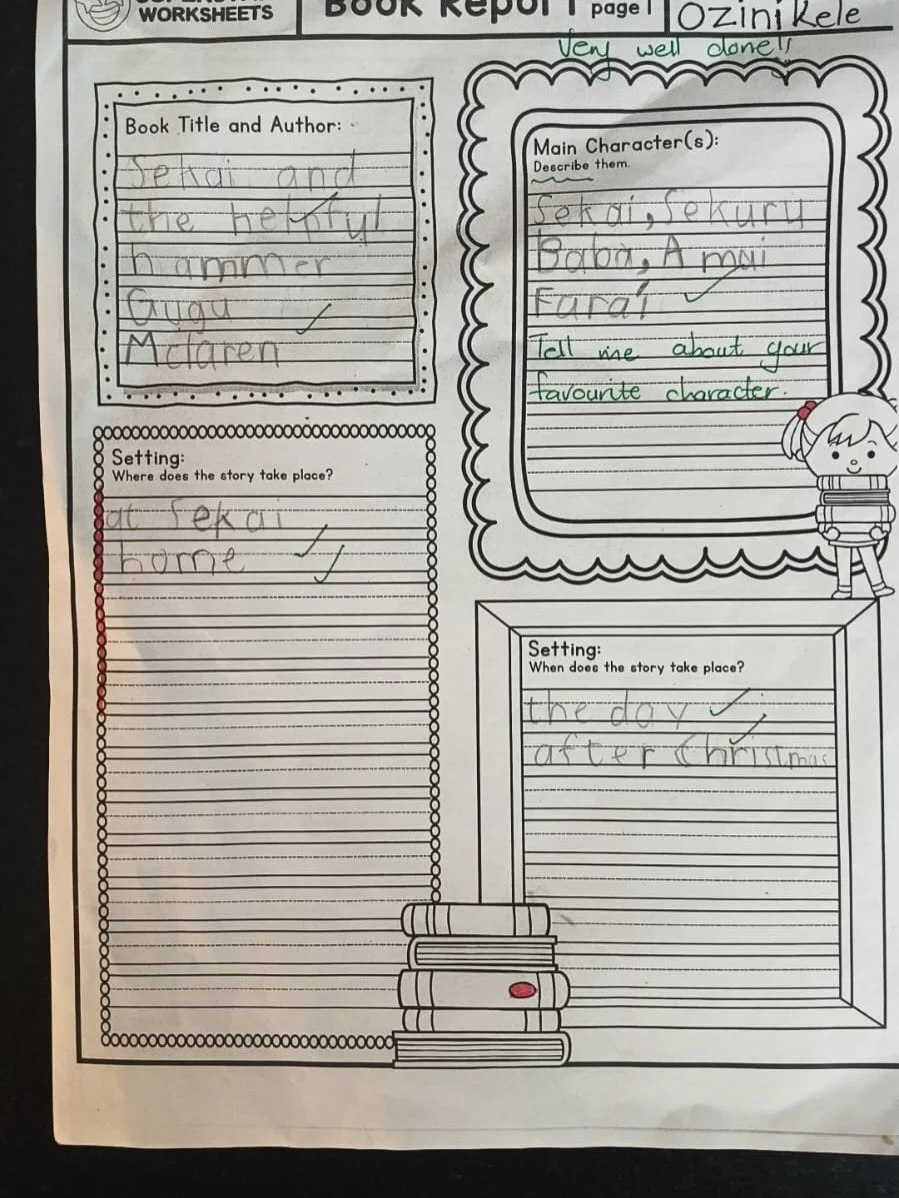 WORKSHEETS
Book Report
page 1
Ozinikele
Very well done!!
Book Title and Author:
Sekai and
the helpful
hammer
Gugu
Mclaren
Main Character(s):
Describe them.
Sekai, Sekuru
Baba, Amai
Farai
Tell me about your
favourite character.
Setting:
Where does the story take place?
at Sekai
home
Setting:
When does the story take place?
the day
after Christmas